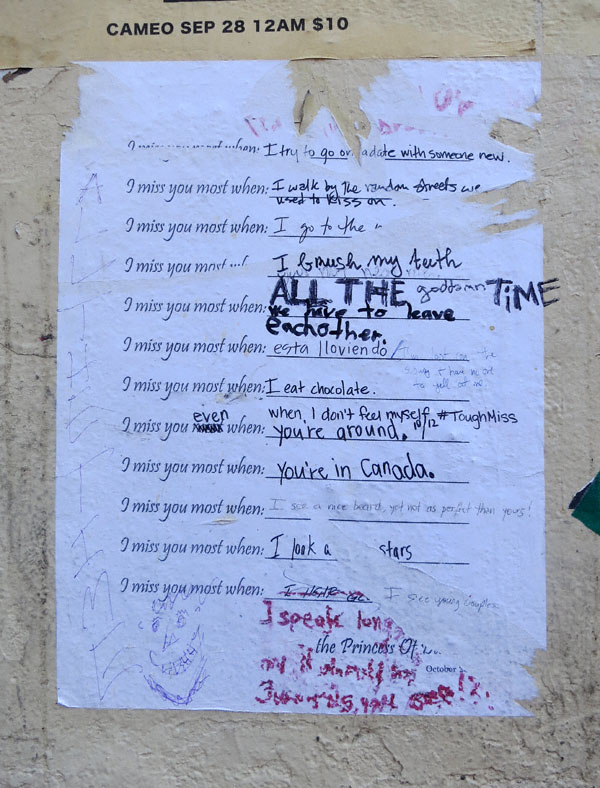 CAMEO SEP 28 12AM $10
I miss you most when: I try to go on a date with someone new.
I miss you most when: I walk by the random streets we
used to kiss on.
I miss you most when: I go to the
I miss you most I brush my teeth
ALL THE goddamn TiME
I miss you most when: we have to leave
eachother.
I miss you most when: esta lloviendo
I miss you most when: I eat chocolate.
even when, I don't feel myself. 10/12 #ToughMiss
I miss you when: you're around.
I miss you most when: you're in Canada.
I miss you most when: I see a nice beard, yet not as perfect than yours!
I miss you most when: I look a stars
I miss you most when: I see young couples
I speak
the Princess Of
October
ALL THE TIME